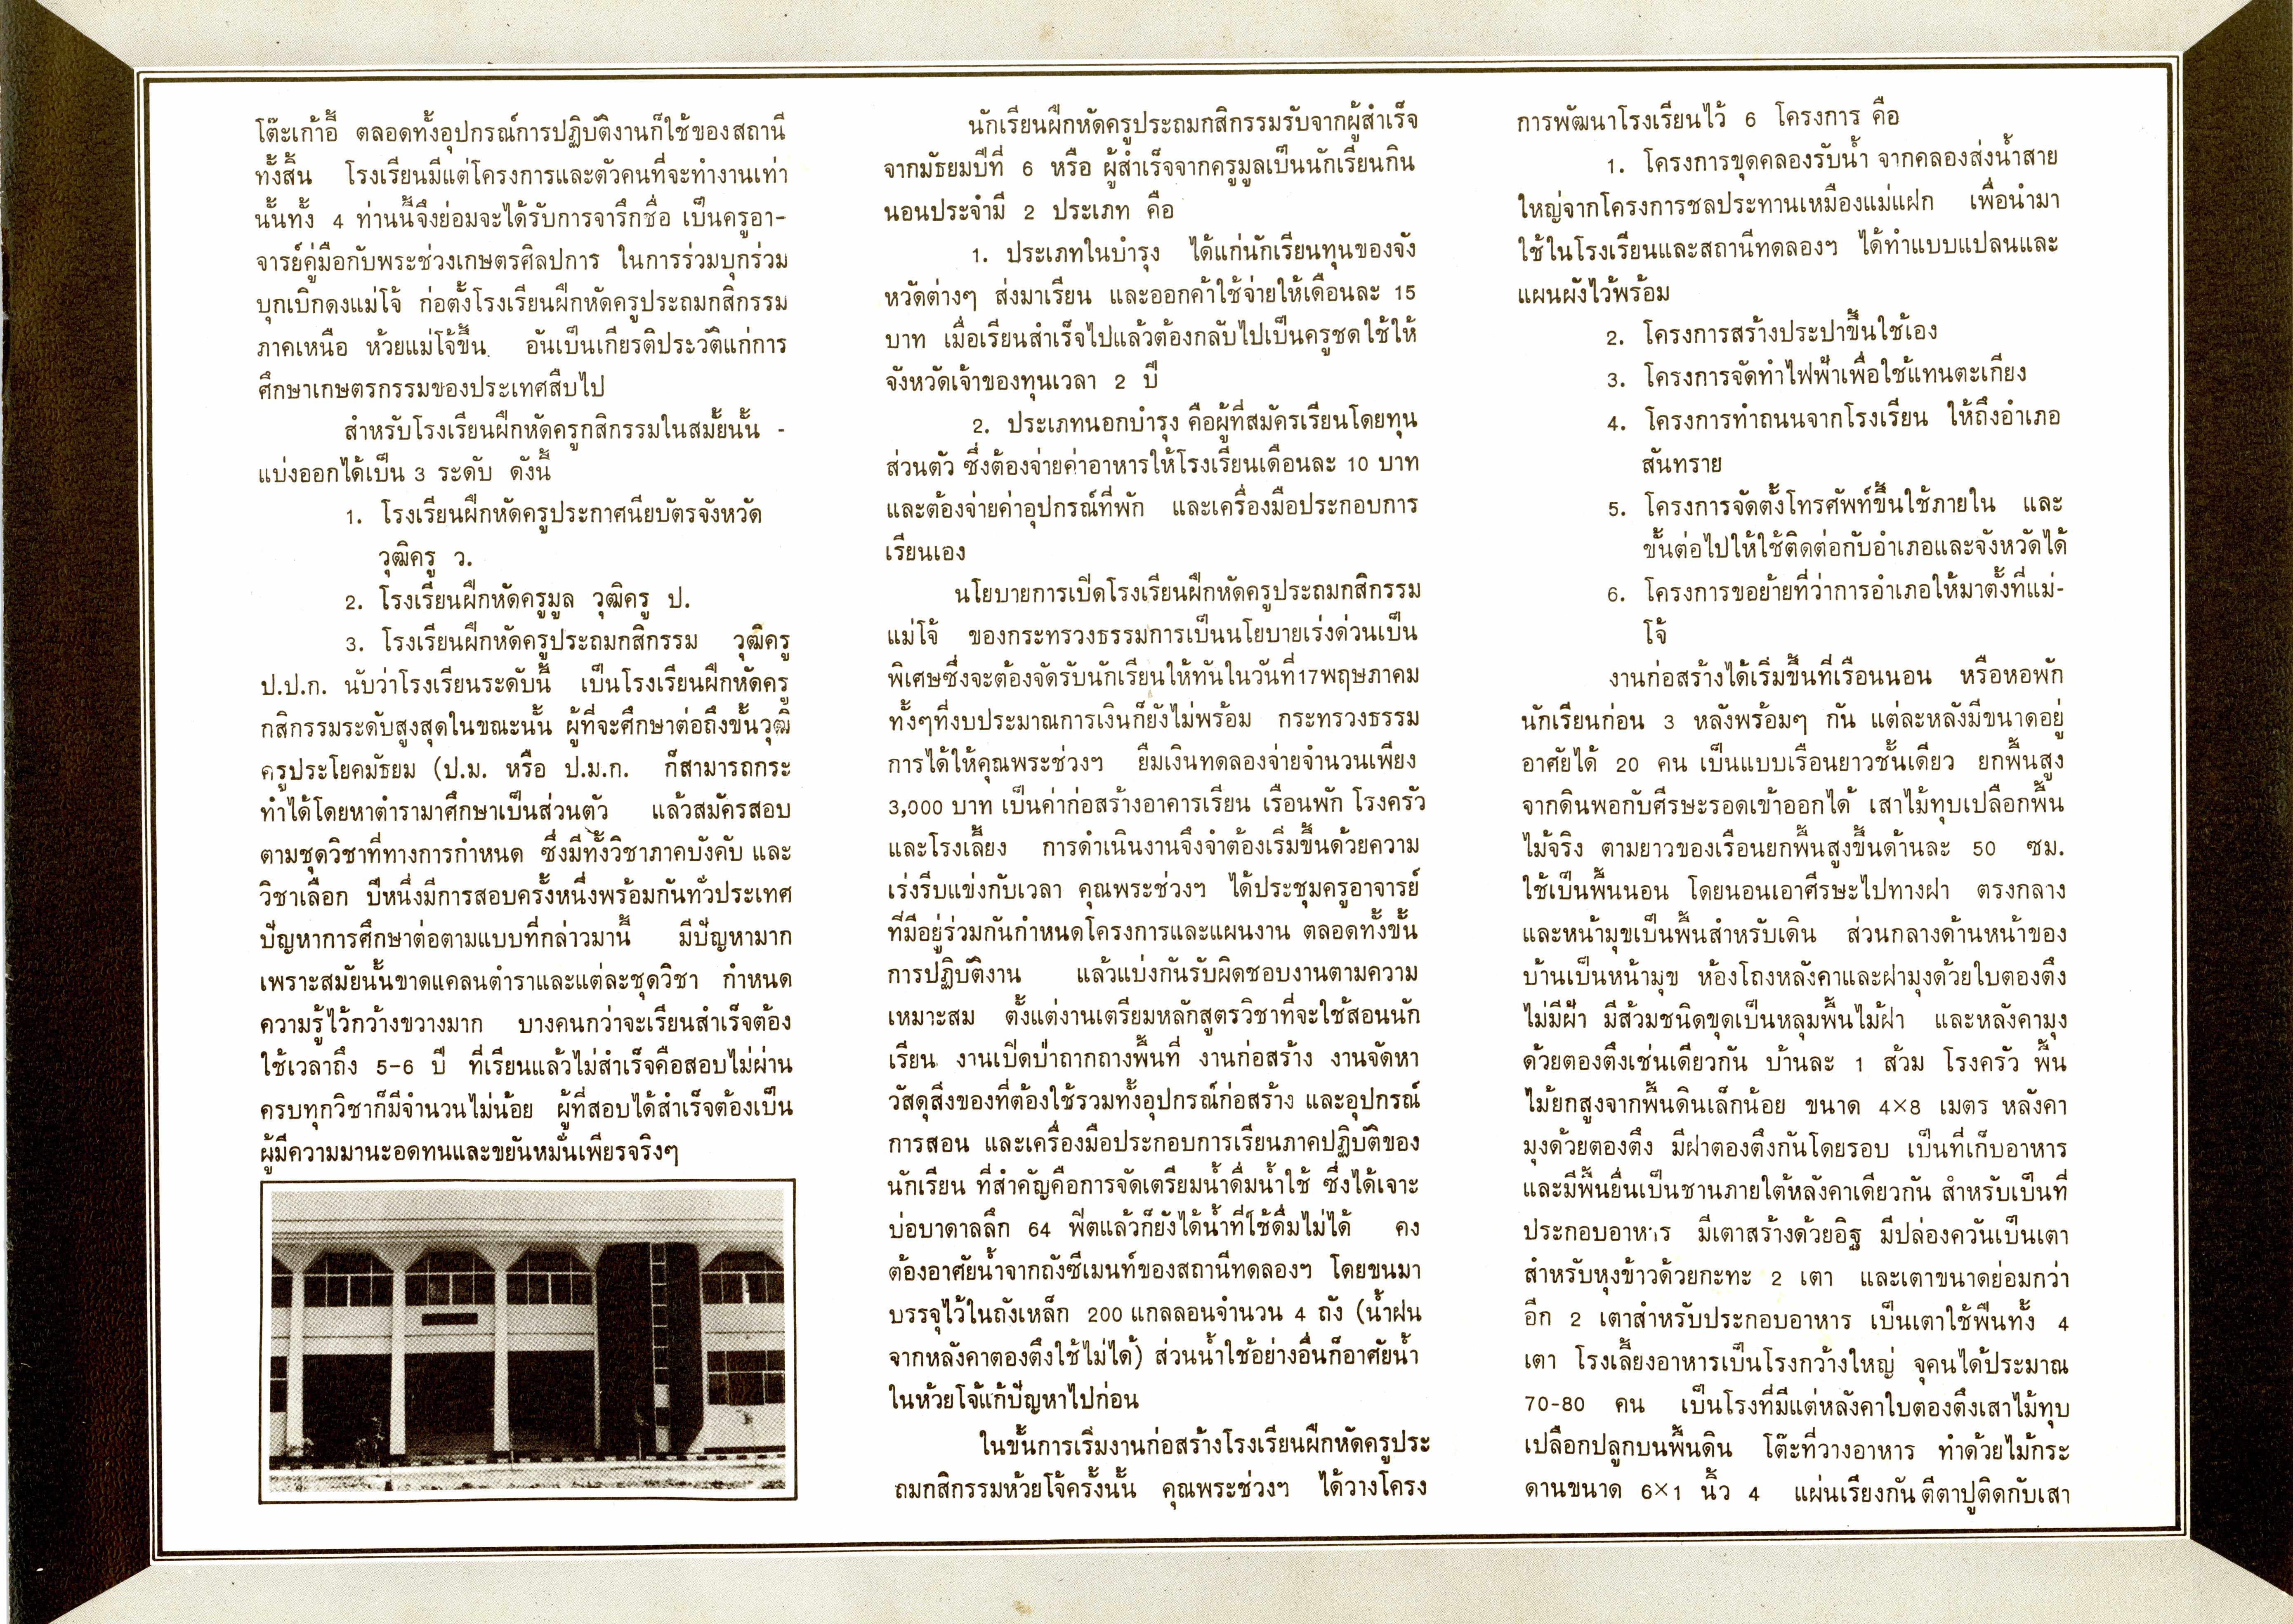 โต๊ะเก้าอี้ ตลอดทั้งอุปกรณ์การปฏิบัติงานก็ใช้ของสถานี
ทั้งสิ้น โรงเรียนมีแต่โครงการและตัวคนที่จะทำงานเท่า
นั้นทั้ง 4 ท่านนี้จึงย่อมจะได้รับการจารึกชื่อ เป็นครูอา-
จารย์คู่มือกับพระช่วงเกษตรศิลปการ ในการร่วมบุกร่วม
บุกเบิกดงแม่โจ้ ก่อตั้งโรงเรียนฝึกหัดครูประถมกสิกรรม
ภาคเหนือ ห้วยแม่โจ้ขึ้น อันเป็นเกียรติประวัติแก่การ
ศึกษาเกษตรกรรมของประเทศสืบไป
สำหรับโรงเรียนฝึกหัดครูกสิกรรมในสมัยนั้น -
แบ่งออกได้เป็น 3 ระดับ ดังนี้
1. โรงเรียนฝึกหัดครูประกาศนียบัตรจังหวัด
วุฒิครู ว.
2. โรงเรียนฝึกหัดครูมูล วุฒิครู ป.
3. โรงเรียนฝึกหัดครูประถมกสิกรรม วุฒิครู
ป.ป.ก. นับว่าโรงเรียนระดับนี้ เป็นโรงเรียนฝึกหัดครู
กสิกรรมระดับสูงสุดในขณะนั้น ผู้ที่จะศึกษาต่อถึงขั้นวุฒิ
ครูประโยคมัธยม (ป.ม. หรือ ป.ม.ก. ก็สามารถกระ
ทำได้โดยหาตำรามาศึกษาเป็นส่วนตัว แล้วสมัครสอบ
ตามชุดวิชาที่ทางการกำหนด ซึ่งมีทั้งวิชาภาคบังคับ และ
วิชาเลือก ปีหนึ่งมีการสอบครั้งหนึ่งพร้อมกันทั่วประเทศ
ปัญหาการศึกษาต่อตามแบบที่กล่าวมานี้ มีปัญหามาก
เพราะสมัยนั้นขาดแคลนตำราและแต่ละชุดวิชา กำหนด
ความรู้ไว้กว้างขวางมาก บางคนกว่าจะเรียนสำเร็จต้อง
ใช้เวลาถึง 5-6 ปี ที่เรียนแล้วไม่สำเร็จคือสอบไม่ผ่าน
ครบทุกวิชาก็มีจำนวนไม่น้อย ผู้ที่สอบได้สำเร็จต้องเป็น
ผู้มีความมานะอดทนและขยันหมั่นเพียรจริงๆ
นักเรียนฝึกหัดครูประถมกสิกรรมรับจากผู้สำเร็จ
จากมัธยมปีที่ 6 หรือ ผู้สำเร็จจากครูมูลเป็นนักเรียนกิน
นอนประจำมี 2 ประเภท คือ
1. ประเภทในบำรุง ได้แก่นักเรียนทุนของจัง
หวัดต่างๆ ส่งมาเรียน และออกค้าใช้จ่ายให้เดือนละ 15
บาท เมื่อเรียนสำเร็จไปแล้วต้องกลับไปเป็นครูชดใช้ให้
จังหวัดเจ้าของทุนเวลา 2 ปี
2. ประเภทนอกบำรุง คือผู้ที่สมัครเรียนโดยทุน
ส่วนตัว ซึ่งต้องจ่ายค่าอาหารให้โรงเรียนเดือนละ 10 บาท
และต้องจ่ายค่าอุปกรณ์ที่พัก และเครื่องมือประกอบการ
เรียนเอง
นโยบายการเปิดโรงเรียนฝึกหัดครูประถมกสิกรรม
แม่โจ้ ของกระทรวงธรรมการเป็นนโยบายเร่งด่วนเป็น
พิเศษซึ่งจะต้องจัดรับนักเรียนให้ทันในวันที่17พฤษภาคม
ทั้งๆที่งบประมาณการเงินก็ยังไม่พร้อม กระทรวงธรรม
การได้ให้คุณพระช่วงฯ ยืมเงินทดลองจ่ายจำนวนเพียง
3,000 บาท เป็นค่าก่อสร้างอาคารเรียน เรือนพัก โรงครัว
และโรงเลี้ยง การดำเนินงานจึงจำต้องเริ่มขึ้นด้วยความ
เร่งรีบแข่งกับเวลา คุณพระช่วงฯ ได้ประชุมครูอาจารย์
ที่มีอยู่ร่วมกันกำหนดโครงการและแผนงาน ตลอดทั้งขั้น
การปฏิบัติงาน แล้วแบ่งกันรับผิดชอบงานตามความ
เหมาะสม ตั้งแต่งานเตรียมหลักสูตรวิชาที่จะใช้สอนนัก
เรียน งานเปิดป่าถากถางพื้นที่ งานก่อสร้าง งานจัดหา
วัสดุสิ่งของที่ต้องใช้รวมทั้งอุปกรณ์ก่อสร้าง และอุปกรณ์
การสอน และเครื่องมือประกอบการเรียนภาคปฏิบัติของ
นักเรียน ที่สำคัญคือการจัดเตรียมน้ำดื่มน้ำใช้ ซึ่งได้เจาะ
บ่อบาดาลลึก 64 ฟีตแล้วก็ยังได้น้ำที่ใช้ดื่มไม่ได้ คง
ต้องอาศัยน้ำจากถังซีเมนท์ของสถานีทดลองฯ โดยขนมา
บรรจุไว้ในถังเหล็ก 200 แกลลอนจำนวน 4 ถัง (น้ำฝน
จากหลังคาตองตึงใช้ไม่ได้) ส่วนน้ำใช้อย่างอื่นก็อาศัยน้ำ
ในห้วยโจ้แก้ปัญหาไปก่อน
ในขั้นการเริ่มงานก่อสร้างโรงเรียนฝึกหัดครูประ
ถมกสิกรรมห้วยโจ้ครั้งนั้น คุณพระช่วงฯ ได้วางโครง
การพัฒนาโรงเรียนไว้ 6 โครงการ คือ
1. โครงการขุดคลองรับน้ำ จากคลองส่งน้ำสาย
ใหญ่จากโครงการชลประทานเหมืองแม่แฝก เพื่อนำมา
ใช้ในโรงเรียนและสถานีทดลองฯ ได้ทำแบบแปลนและ
แผนผังไว้พร้อม
2. โครงการสร้างประปาขึ้นใช้เอง
3. โครงการจัดทำไฟฟ้าเพื่อใช้แทนตะเกียง
4. โครงการทำถนนจากโรงเรียน ให้ถึงอำเภอ
สันทราย
5. โครงการจัดตั้งโทรศัพท์ขึ้นใช้ภายใน และ
ขั้นต่อไปให้ใช้ติดต่อกับอำเภอและจังหวัดได้
6. โครงการขอย้ายที่ว่าการอำเภอให้มาตั้งที่แม่-
โจ้
งานก่อสร้างได้เริ่มขึ้นที่เรือนนอน หรือหอพัก
นักเรียนก่อน 3 หลังพร้อมๆ กัน แต่ละหลังมีขนาดอยู่
อาศัยได้ 20 คน เป็นแบบเรือนยาวชั้นเดียว ยกพื้นสูง
จากดินพอกับศีรษะรอดเข้าออกได้ เสาไม้ทุบเปลือกพื้น
ไม้จริง ตามยาวของเรือนยกพื้นสูงขึ้นด้านละ 50 ซม.
ใช้เป็นพื้นนอน โดยนอนเอาศีรษะไปทางฝา ตรงกลาง
และหน้ามุขเป็นพื้นสำหรับเดิน ส่วนกลางด้านหน้าของ
บ้านเป็นหน้ามุข ห้องโถงหลังคาและฝามุงด้วยใบตองตึง
ไม่มีฝ้า มีส้วมชนิดขุดเป็นหลุมพื้นไม้ฝา และหลังคามุง
ด้วยตองตึงเช่นเดียวกัน บ้านละ 1 ส้วม โรงครัว พื้น
ไม้ยกสูงจากพื้นดินเล็กน้อย ขนาด 4×8 เมตร หลังคา
มุงด้วยตองตึง มีฝาตองตึงกันโดยรอบ เป็นที่เก็บอาหาร
และมีพื้นยื่นเป็นชานภายใต้หลังคาเดียวกัน สำหรับเป็นที่
ประกอบอาหาร มีเตาสร้างด้วยอิฐ มีปล่องควันเป็นเตา
สำหรับหุงข้าวด้วยกะทะ 2 เตา และเตาขนาดย่อมกว่า
อีก 2 เตาสำหรับประกอบอาหาร เป็นเตาใช้ฟืนทั้ง 4
เตา โรงเลี้ยงอาหารเป็นโรงกว้างใหญ่ จุคนได้ประมาณ
70-80 คน เป็นโรงที่มีแต่หลังคาใบตองตึงเสาไม้ทุบ
เปลือกปลูกบนพื้นดิน โต๊ะที่วางอาหาร ทำด้วยไม้กระ
ดานขนาด 6×1 นิ้ว 4 แผ่นเรียงกัน ตีตาปูติดกับเสา